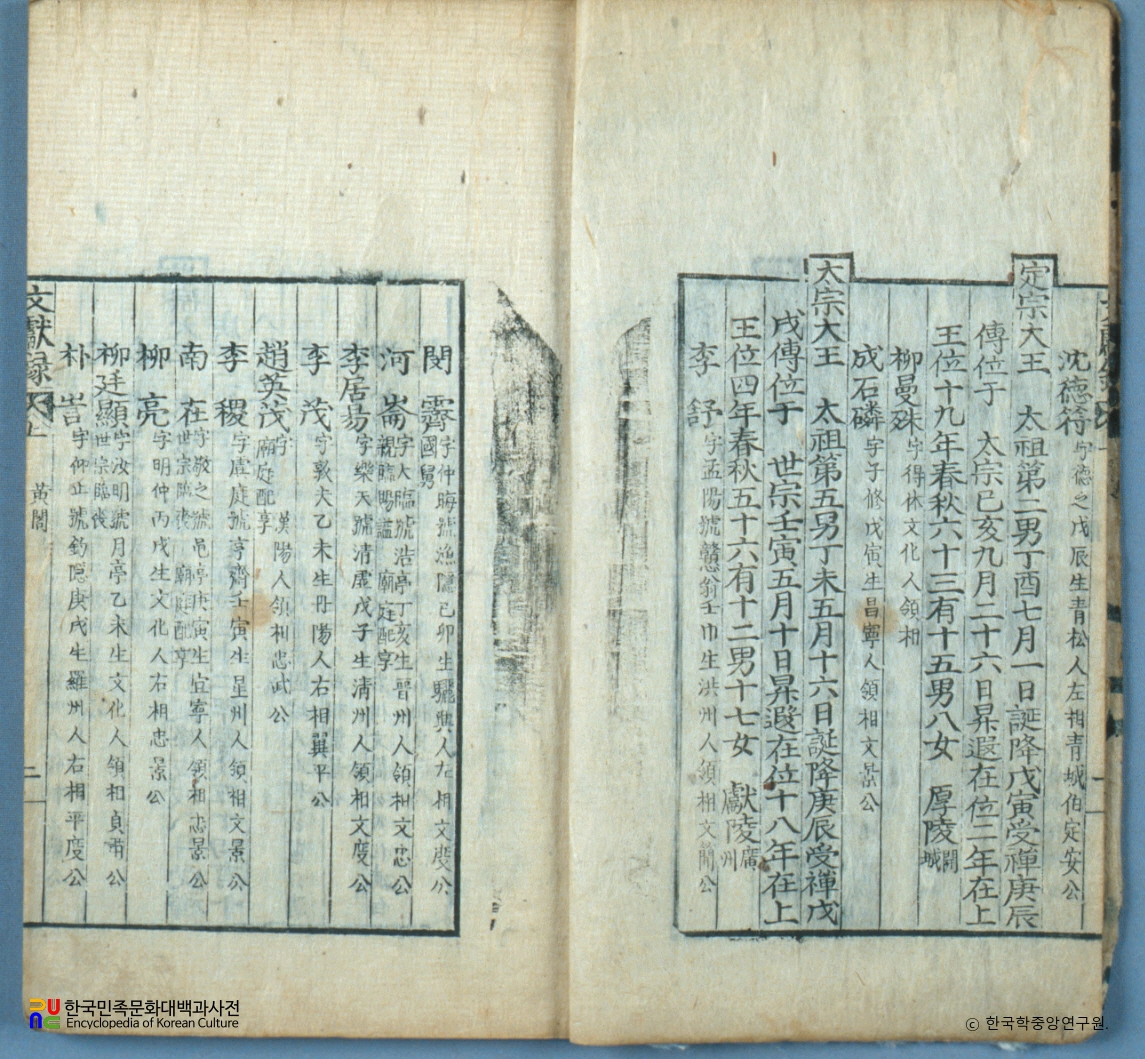 沈德符 字德之戊辰生青松人左相青城伯定安公
定宗大王 太祖第二男丁酉七月一日誕降戊寅受禪庚辰
傳位于 太宗己亥九月二十六日昇遐在位二年在上
王位十九年春秋六十三有十五男八女 厚陵 開城
柳曼殊 字得休文化人領相
成石磷 字子修戊寅生昌寧人領相文景公
太宗大王 太祖第五男丁未五月十六日誕降庚辰受禪戊
戌傳位于 世宗壬寅五月十日昇遐在位十八年在上
王位四年春秋五十六有十二男十七女 獻陵 廣州
李舒 字孟陽號戇翁壬巾生洪州人領相文簡公
閔霽 字仲晦號漁隱己卯生驪興人左相文度公
國舅
河崙 字大臨號浩亭丁亥生晉州人領相文忠公
親臨賜諡 廟庭配享
李居易 字樂天號清虛戊子生清州人領相文度公
李茂 字敦夫乙未生丹陽人右相翼平公
趙英茂 字 漢陽人領相忠武公
廟庭配享
李稷 字虛庭號亨齋壬寅生星州人領相文景公
南在 字敬之號龜亭庚寅生宜寧人領相忠景公
世宗臨喪 廟庭配享
柳亮 字明仲丙戌生文化人右相忠景公
柳廷顯 字汝明號月亭乙未生文化人領相貞肅公
世宗臨喪
朴訔 字仰止號釣隱庚戌生羅州人右相平度公
文獻錄 上 黃閣 二
한국민족문화대백과사전
Encyclopedia of Korean Culture
© 한국학중앙연구원.